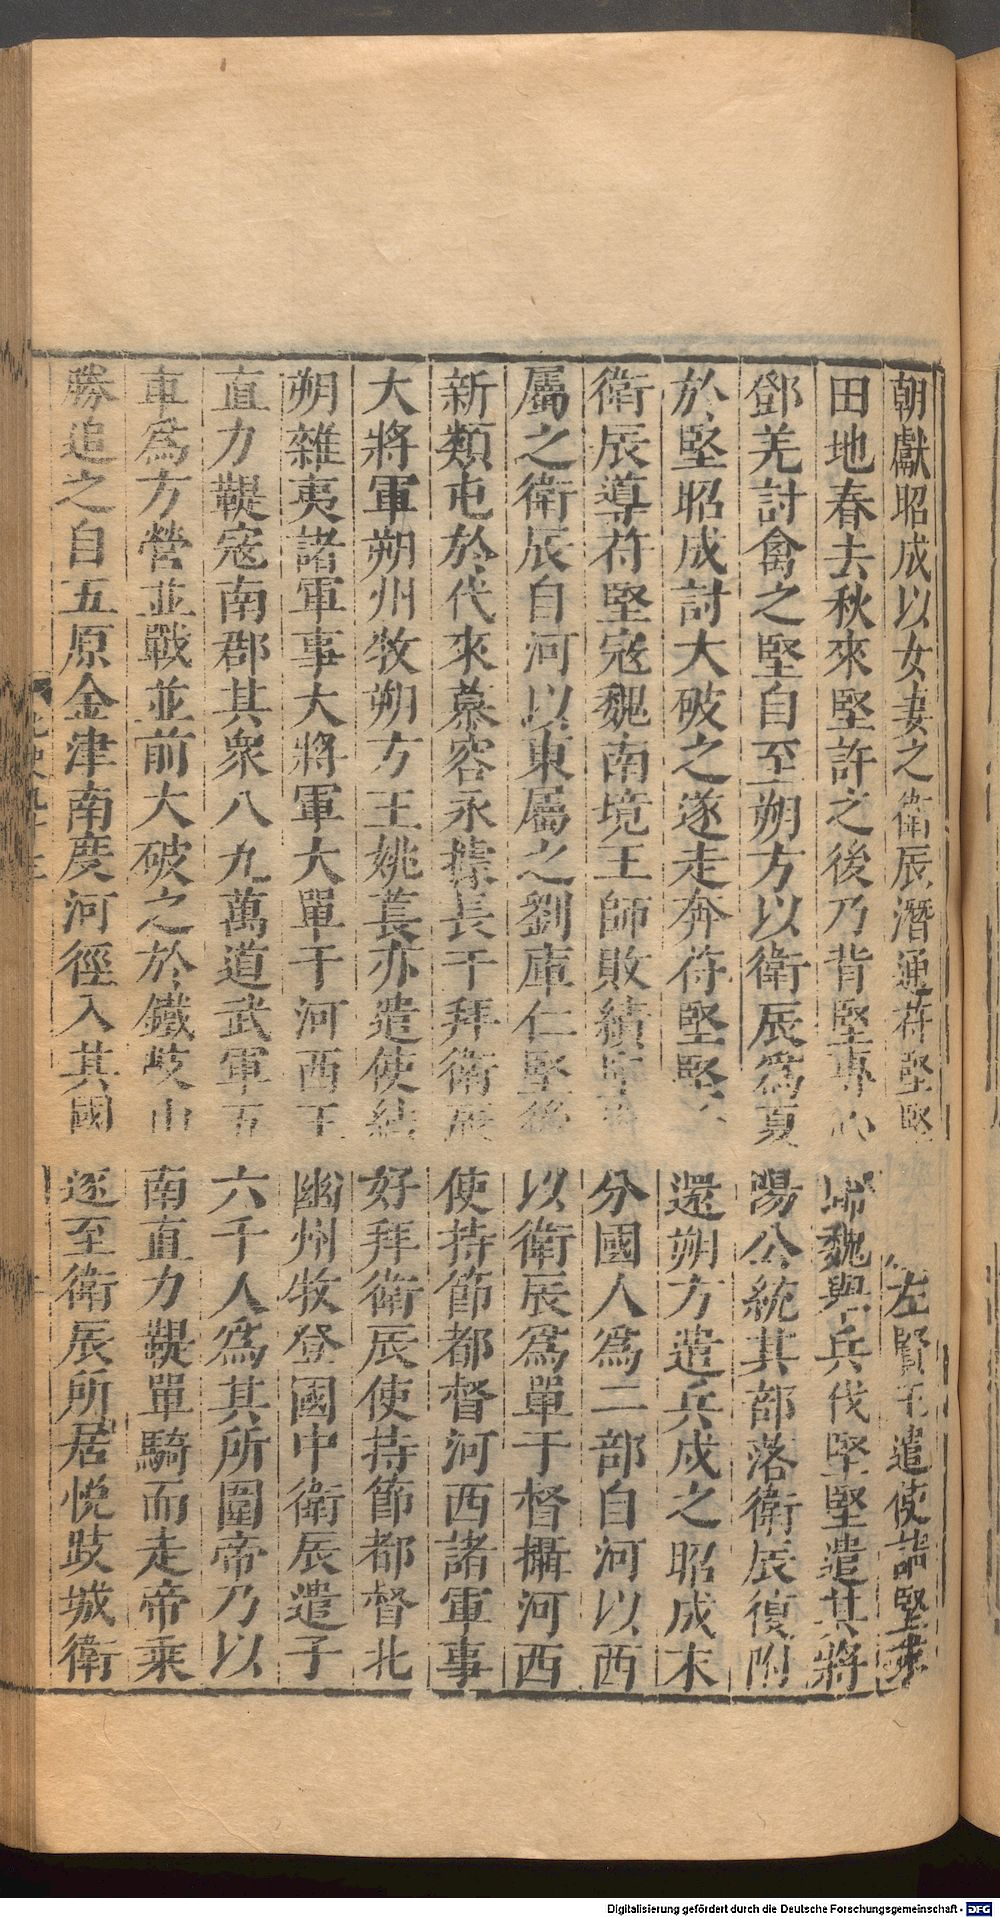 朝獻昭成以女妻之衛辰潛通苻堅堅左賢王遣使詣堅求
田地春去秋來堅許之後乃背堅專心歸魏與兵伐堅堅遣其將
鄧羌討禽之堅自至朔方以衛辰爲夏陽公統其部落衛辰復附
於堅昭成討大破之遂走奔苻堅堅還朔方遣兵戍之昭成末
衛辰導苻堅寇魏南境王師敗績堅分國人爲二部自河以西
屬之衛辰自河以東屬之劉庫仁堅後以衛辰爲單于督攝河西
新類屯於代來慕容永據長子拜衛辰使持節都督河西諸軍事
大將軍朔州牧朔方王姚萇亦遣使結好拜衛辰使持節都督北
朔雜夷諸軍事大將軍大單于河西王幽州牧登國中衛辰遣子
直力鞮寇南郡其衆八九萬道武軍五六千人爲其所圍帝乃以
車爲方營並戰並前大破之於鐵歧山南直力鞮單騎而走帝乘
勝追之自五原金津南度河徑入其國逐至衛辰所居悅跋城衛
Digitalisierung gefördert durch die Deutsche Forschungsgemeinschaft - DFG